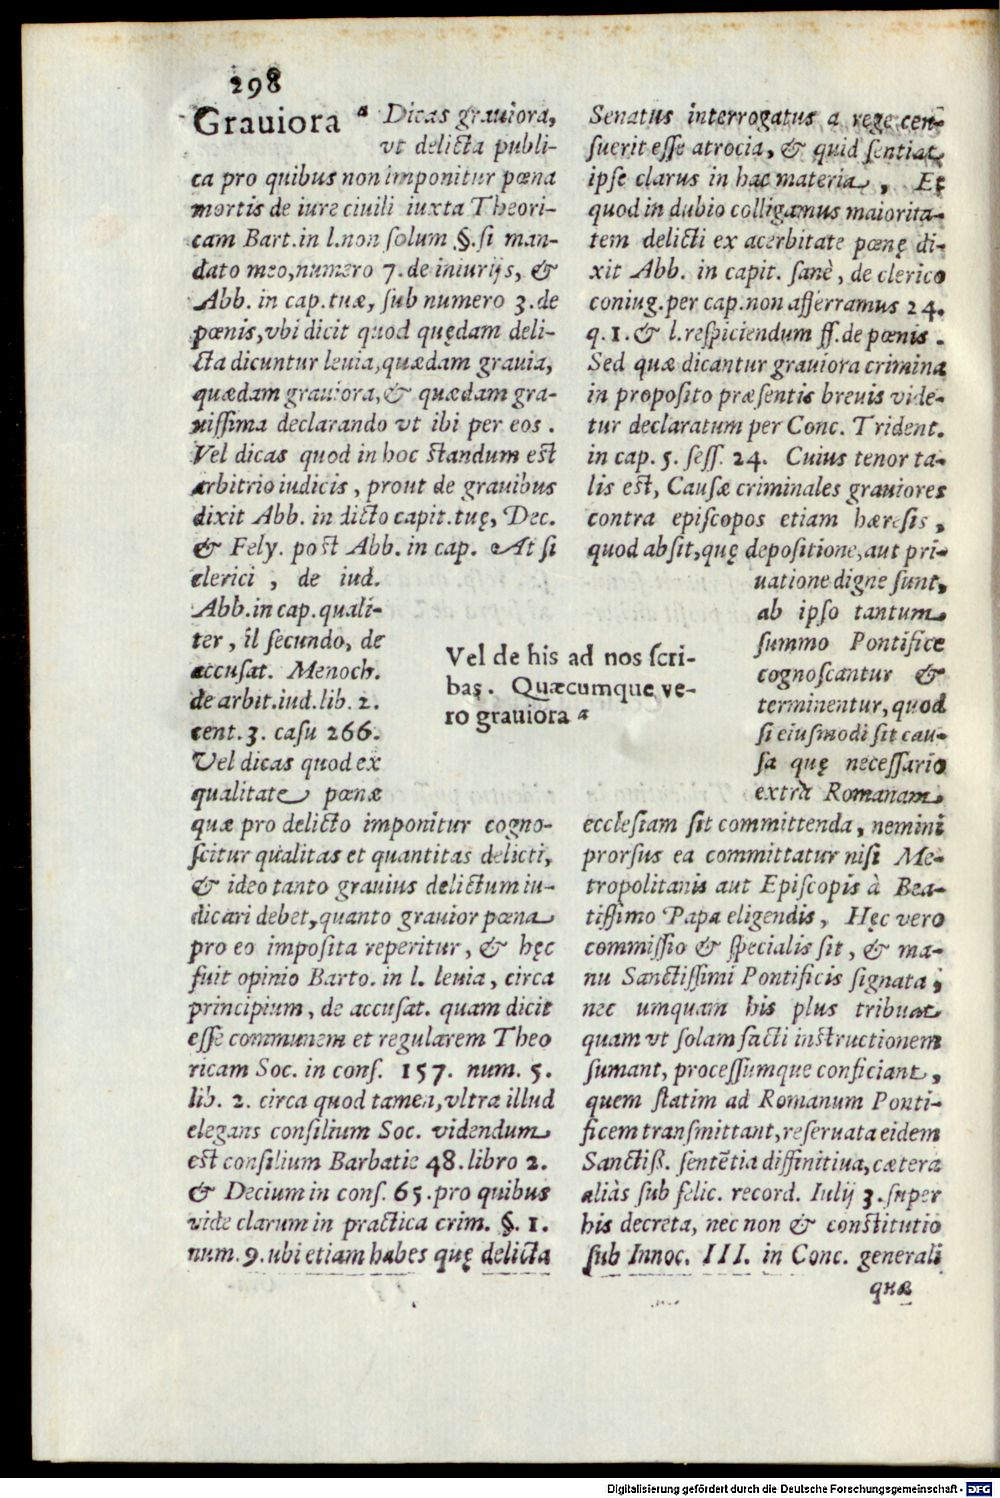 298
Grauiora ª Dicas grauiora,
vt delicta publi-
ca pro quibus non imponitur pœna
mortis de iure ciuili iuxta Theori-
cam Bart. in l. non ſolum §. ſi man-
dato meo, numero 7. de iniurijs, &
Abb. in cap. tuæ, ſub numero 3. de
pœnis, vbi dicit quod quędam deli-
cta dicuntur leuia, quædam grauia,
quædam grauiora, & quædam gra-
uiſſima declarando vt ibi per eos.
Vel dicas quod in hoc ſtandum eſt
arbitrio iudicis, prout de grauibus
dixit Abb. in dicto capit. tuę, Dec.
& Fely. poſt Abb. in cap. At ſi
clerici, de iud.
Abb. in cap. quali-
ter, il ſecundo, de
accuſat. Menoch.
de arbit. iud. lib. 2.
cent. 3. caſu 266.
Vel dicas quod ex
qualitate pœnæ
quæ pro delicto imponitur cogno-
ſcitur qualitas et quantitas delicti,
& ideo tanto grauius delictum iu-
dicari debet, quanto grauior pœna
pro eo impoſita reperitur, & hęc
fuit opinio Barto. in l. leuia, circa
principium, de accuſat. quam dicit
eſſe communem et regularem Theo
ricam Soc. in conſ. 157. num. 5.
lib. 2. circa quod tamen, vltra illud
elegans conſilium Soc. videndum
eſt conſilium Barbatie 48. libro 2.
& Decium in conſ. 65. pro quibus
vide clarum in practica crim. §. 1.
num. 9. ubi etiam habes quę delicta
Vel de his ad nos ſcri-
bas. Quæcumque ve-
ro grauiora ª
Senatus interrogatus a rege cen-
ſuerit eſſe atrocia, & quid ſentiat
ipſe clarus in hac materia, Et
quod in dubio colligamus maiorita-
tem delicti ex acerbitate pœnę di-
xit Abb. in capit. ſanè, de clerico
coniug. per cap. non afferramus 24.
q. 1. & l. reſpiciendum ff. de pœnis.
Sed quæ dicantur grauiora crimina
in propoſito præſentis breuis vide-
tur declaratum per Conc. Trident.
in cap. 5. ſeſſ. 24. Cuius tenor ta-
lis eſt, Cauſæ criminales grauiores
contra epiſcopos etiam hæreſis,
quod abſit, quę depoſitione, aut pri-
uatione digne ſunt,
ab ipſo tantum
ſummo Pontifice
cognoſcantur &
terminentur, quod
ſi eiuſmodi ſit cau-
ſa quę neceſſario
extrà Romanam
eccleſiam ſit committenda, nemini
prorſus ea committatur niſi Me-
tropolitanis aut Epiſcopis à Bea-
tiſſimo Papa eligendis, Hęc vero
commiſſio & ſpecialis ſit, & ma-
nu Sanctiſſimi Pontificis ſignata;
nec umquam his plus tribuat
quam vt ſolam facti inſtructionem
ſumant, proceſſumque conficiant,
quem ſtatim ad Romanum Ponti-
ficem tranſmittant, reſeruata eidem
Sanctiß. ſentētia diffinitiua, cætera
aliàs ſub felic. record. Iulij 3. ſuper
his decreta, nec non & conſtitutio
ſub Innoc. III. in Conc. generali
quæ
Digitalisierung gefördert durch die Deutsche Forschungsgemeinschaft - DFG